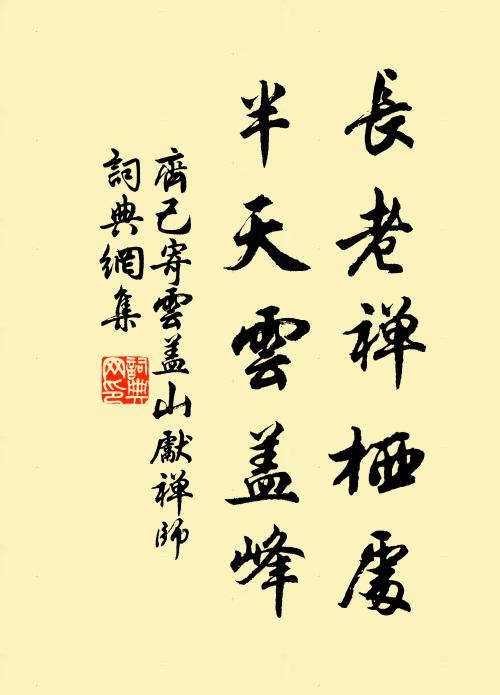 長老禅栖處
半天雲盖峰
齊己寄雲盖山獻禅師
詞典網集
詞典网印